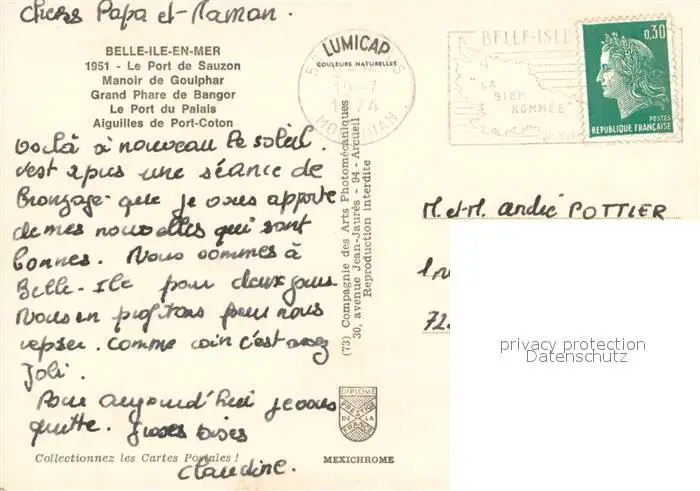 Chers Papa et Maman.
BELLE-ILE-EN-MER
1951 - Le Port de Sauzon
Manoir de Goulphar
Grand Phare de Bangor
Le Port du Palais
Aiguilles de Port-Coton
Voilà à nouveau le soleil.
c'est apus une séance de
bronzage que je vous apporte
de mes nouvelles qui sont
bonnes. Nous sommes à
Belle-Ile pour deux jours
Nous en profitons pour nous
reposer. Comme coin c'est assez
joli.
Pour aujourd'hui je vous
quitte. Grosses bises
Claudine.
Collectionnez les Cartes Postales !
LUMICAP
COULEURS NATURELLES
19-7
1974
MORBIHAN
(73) Compagnie des Arts Photomécaniques
30, avenue Jean-Jaurès - 94 - Arcueil
Reproduction interdite
DIPLOME
PRESTIGE
DE LA
FRANCE
MEXICHROME
BELLE-ISLE
"LA
BIEN
NOMMÉE"
0,30
POSTES
REPUBLIQUE FRANÇAISE
M. et M. André POTTIER
72
privacy protection
Datenschutz